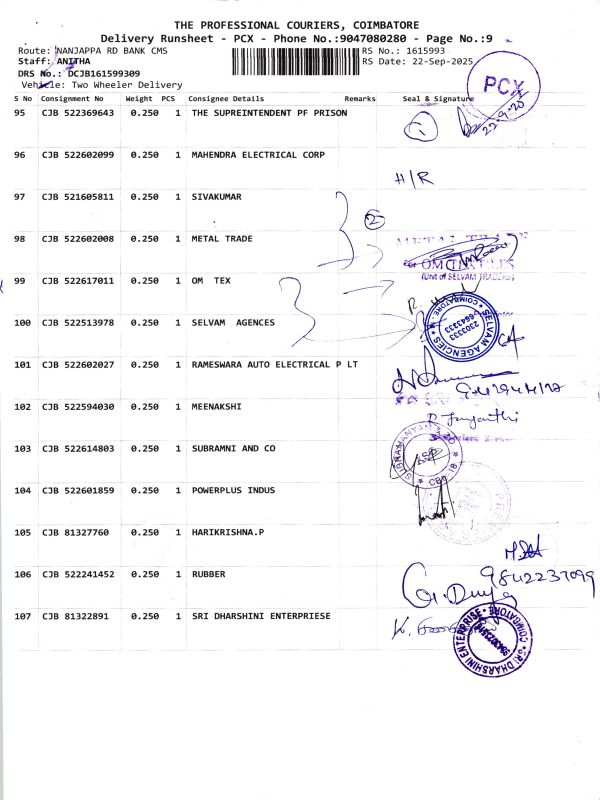 THE PROFESSIONAL COURIERS, COIMBATORE
Delivery Runsheet - PCX - Phone No.:9047080280 - Page No.:9
Route: NANJAPPA RD BANK CMS
RS No.: 1615993
Staff: ANITHA
RS Date: 22-Sep-2025
DRS No.: DCJB161599309
Vehicle: Two Wheeler Delivery
PCX
S No Consignment No Weight PCS Consignee Details Remarks Seal & Signature
95 CJB 522369643 0.250 1 THE SUPREINTENDENT PF PRISON
22-9-25
96 CJB 522602099 0.250 1 MAHENDRA ELECTRICAL CORP
H/R
97 CJB 521605811 0.250 1 SIVAKUMAR
2
98 CJB 522602008 0.250 1 METAL TRADE
(Unit of SELVAM TRADERS)
99 CJB 522617011 0.250 1 OM TEX
100 CJB 522513978 0.250 1 SELVAM AGENCES
SELVAM AGENCIES COIMBATORE
2303333
6643333
101 CJB 522602027 0.250 1 RAMESWARA AUTO ELECTRICAL P LT
102 CJB 522594030 0.250 1 MEENAKSHI
R Jayanthi
103 CJB 522614803 0.250 1 SUBRAMNI AND CO
104 CJB 522601859 0.250 1 POWERPLUS INDUS
105 CJB 81327760 0.250 1 HARIKRISHNA.P
106 CJB 522241452 0.250 1 RUBBER
9842237099
107 CJB 81322891 0.250 1 SRI DHARSHINI ENTERPRIESE
SRI DHARSHINI ENTERPRISE COIMBATORE